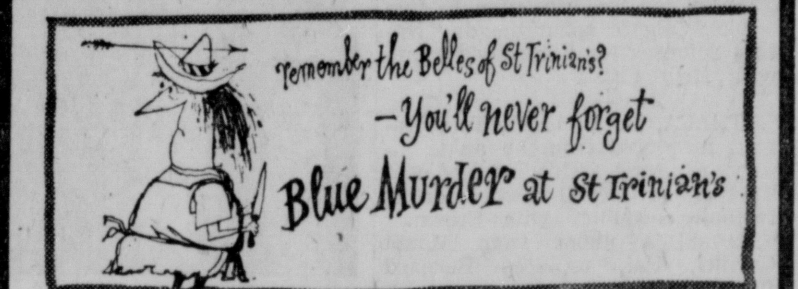 remember the Belles of St Trinian's?
– You'll never forget
Blue Murder at St Trinian's